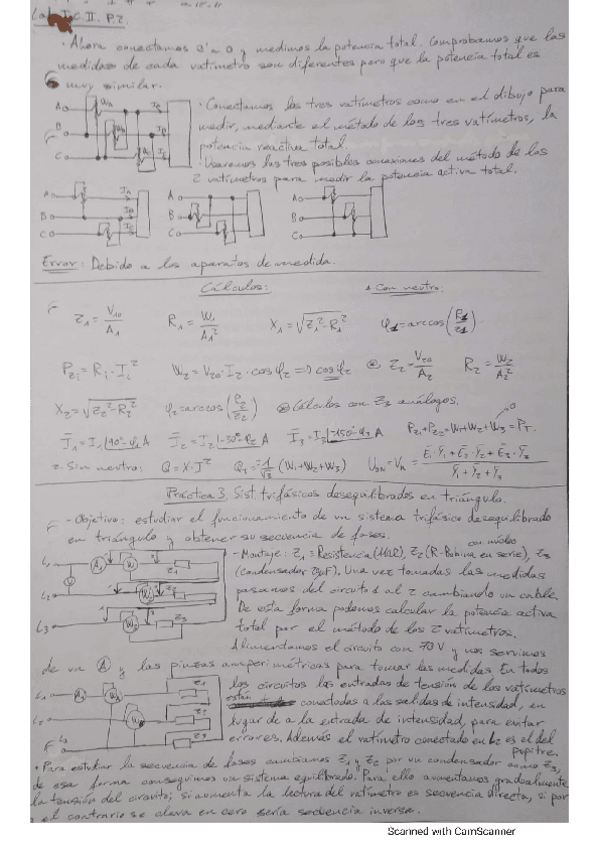 Lab. T.C. II. P.2.
· Ahora conectamos 0'a 0 y medimos la potencia total. Comprobamos que las
medidas de cada vatímetro son diferentes pero que la potencia total es
muy similar.
· Conectamos los tres vatímetros como en el dibujo para
medir, mediante el método de los tres vatímetros, la
potencia reactiva total.
· Usaremos las tres posibles conexiones del método de los
2 vatímetros para medir la potencia activa total.
A
B
C
A
B
C
A
B
C
A
B
C
Error: Debido a los aparatos de medida.
Cálculos:
1 Con neutro:
Z₁ = V₁₀/A₁ R₁ = W₁/A₁² X₁ = √(Z₁²-R₁²) φ₁ = arccos(R₁/Z₁)
Pzi = Ri · Ii² W₂ = V₂₀ · I₂ · cos φ₂ => cos φ₂ Z₂ = V₂₀/A₂ R₂ = W₂/A₂²
X₂ = √(Z₂²-R₂²) φ₂ = arccos(R₂/Z₂) Cálculos con Z₃ análogos.
Pz₁+Pz₂ = W₁+W₂+W₃ = PT
2. Sin neutro: Q = X·I² (W₁+W₂+W₃)
Práctica 3. Sist. trifásicos desequilibrados en triángulo.
- Objetivo: estudiar el funcionamiento de un sistema trifásico desequilibrado
en triángulo y obtener su secuencia de fases.
con núcleo
- Montaje: Z₁ = Resistencia, Z₂ (R-Bobina en serie), Z₃
(Condensador). Una vez tomadas las medidas
pasamos del circuito 1 al 2 cambiando un cable.
De esta forma podemos calcular la potencia activa
total por el método de los 2 vatímetros.
Alimentamos el circuito con 70V y nos servimos
de un A y las pinzas amperimétricas para tomar las medidas. En todos
los circuitos las entradas de tensión de los vatímetros
están conectadas a las salidas de intensidad, en
lugar de a la entrada de intensidad, para evitar
errores. Además el vatímetro conectado en L2 es el del
pupitre.
L1
L2
L3
L1
L2
L3
Z1
Z2
Z3
· Para estudiar la secuencia de fases cambiamos Z₁ y Z₂ por un condensador como Z₃,
de esa forma conseguimos un sistema equilibrado. Para ello aumentamos gradualmente
la tensión del circuito; si aumenta la lectura del vatímetro es secuencia directa, si por
el contrario se clava en cero sería secuencia inversa.
Scanned with CamScanner